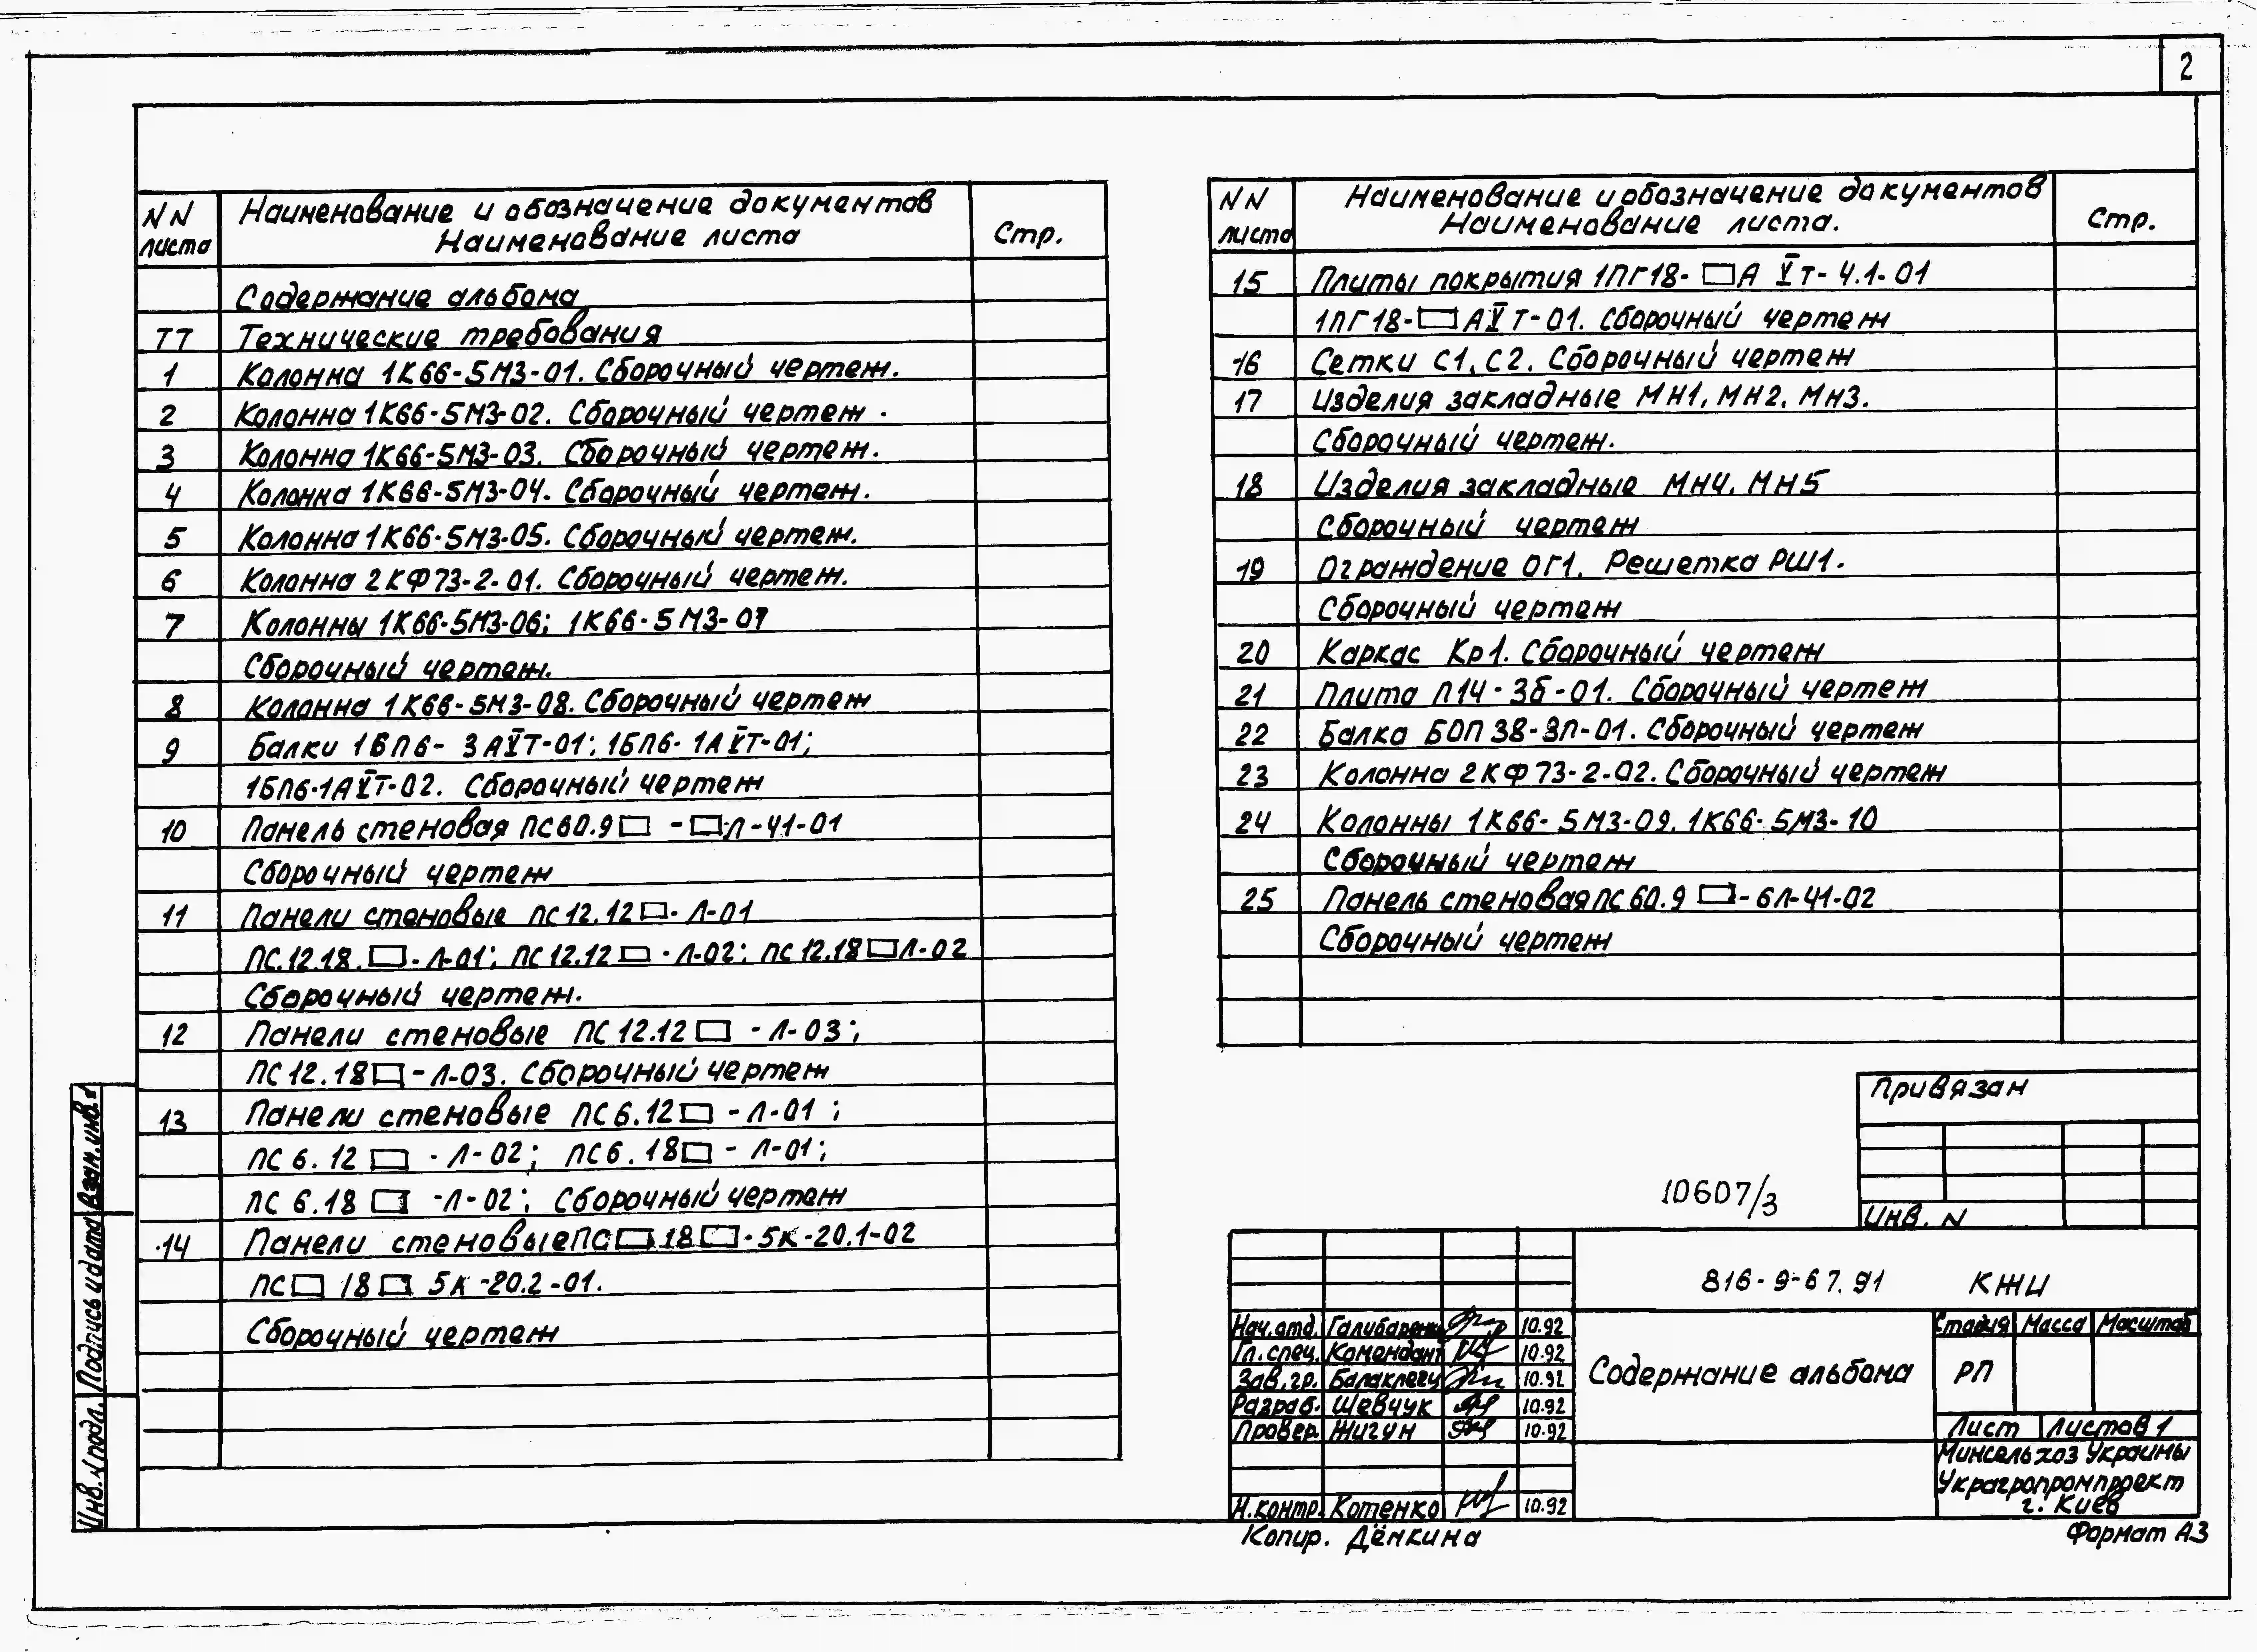 2
NN листа
Наименование и обозначение документов
Наименование листа
Стр.
Содержание альбома
ТТ Технические требования
1 Колонна 1К66-5М3-01. Сборочный чертеж.
2 Колонна 1К66-5М3-02. Сборочный чертеж.
3 Колонна 1К66-5М3-03. Сборочный чертеж.
4 Колонна 1К66-5М3-04. Сборочный чертеж.
5 Колонна 1К66-5М3-05. Сборочный чертеж.
6 Колонна 2КФ73-2-01. Сборочный чертеж.
7 Колонны 1К66-5М3-06; 1К66-5М3-07
Сборочный чертеж.
8 Колонна 1К66-5М3-08. Сборочный чертеж
9 Балки 1БП6-3АⅤТ-01; 1БП6-1АⅤТ-01;
1БП6-1АⅤТ-02. Сборочный чертеж
10 Панель стеновая ПС60.9□ -□Л-41-01
Сборочный чертеж
11 Панели стеновые ПС12.12□-Л-01
ПС.12.18.□-Л-01; ПС12.12□-Л-02; ПС12.18□Л-02
Сборочный чертеж.
12 Панели стеновые ПС12.12□ -Л-03;
ПС12.18□-Л-03. Сборочный чертеж
13 Панели стеновые ПС6.12□ -Л-01;
ПС6.12□ -Л-02; ПС6.18□ - Л-01;
ПС6.18□ -Л-02; Сборочный чертеж
14 Панели стеновые ПС□.18□-5К-20.1-02
ПС□ 18□ 5К-20.2-01.
Сборочный чертеж
NN листа
Наименование и обозначение документов
Наименование листа.
Стр.
15 Плиты покрытия 1ПГ18-□А ⅤТ-4.1-01
1ПГ18-□АⅤТ-01. Сборочный чертеж
16 Сетки С1, С2. Сборочный чертеж
17 Изделия закладные МН1, МН2, МН3.
Сборочный чертеж.
18 Изделия закладные МН4, МН5
Сборочный чертеж
19 Ограждение ОГ1. Решетка РШ1.
Сборочный чертеж
20 Каркас Кр1. Сборочный чертеж
21 Плита П14-3б-01. Сборочный чертеж
22 Балка БОП38-3П-01. Сборочный чертеж
23 Колонна 2КФ73-2-02. Сборочный чертеж
24 Колонны 1К66-5М3-09, 1К66-5М3-10
Сборочный чертеж
25 Панель стеновая ПС60.9□-6Л-41-02
Сборочный чертеж
Привязан
Инв. N
10607/3
816-9-67.91 КЖИ
Нач.отд. Галибаренко 10.92
Гл.спец. Комендант 10.92
Зав.гр. 10.92
Разраб. Шевчук 10.92
Провер. Жигун 10.92
Н.контр. Котенко 10.92
Содержание альбома
Стадия Масса Масштаб
РП
Лист Листов 1
Минсельхоз Украины
Украгропромпроект
г. Киев
Копир. Дёмкина
Формат А3
Взам.инв.
Подпись и дата
Инв. N подл.